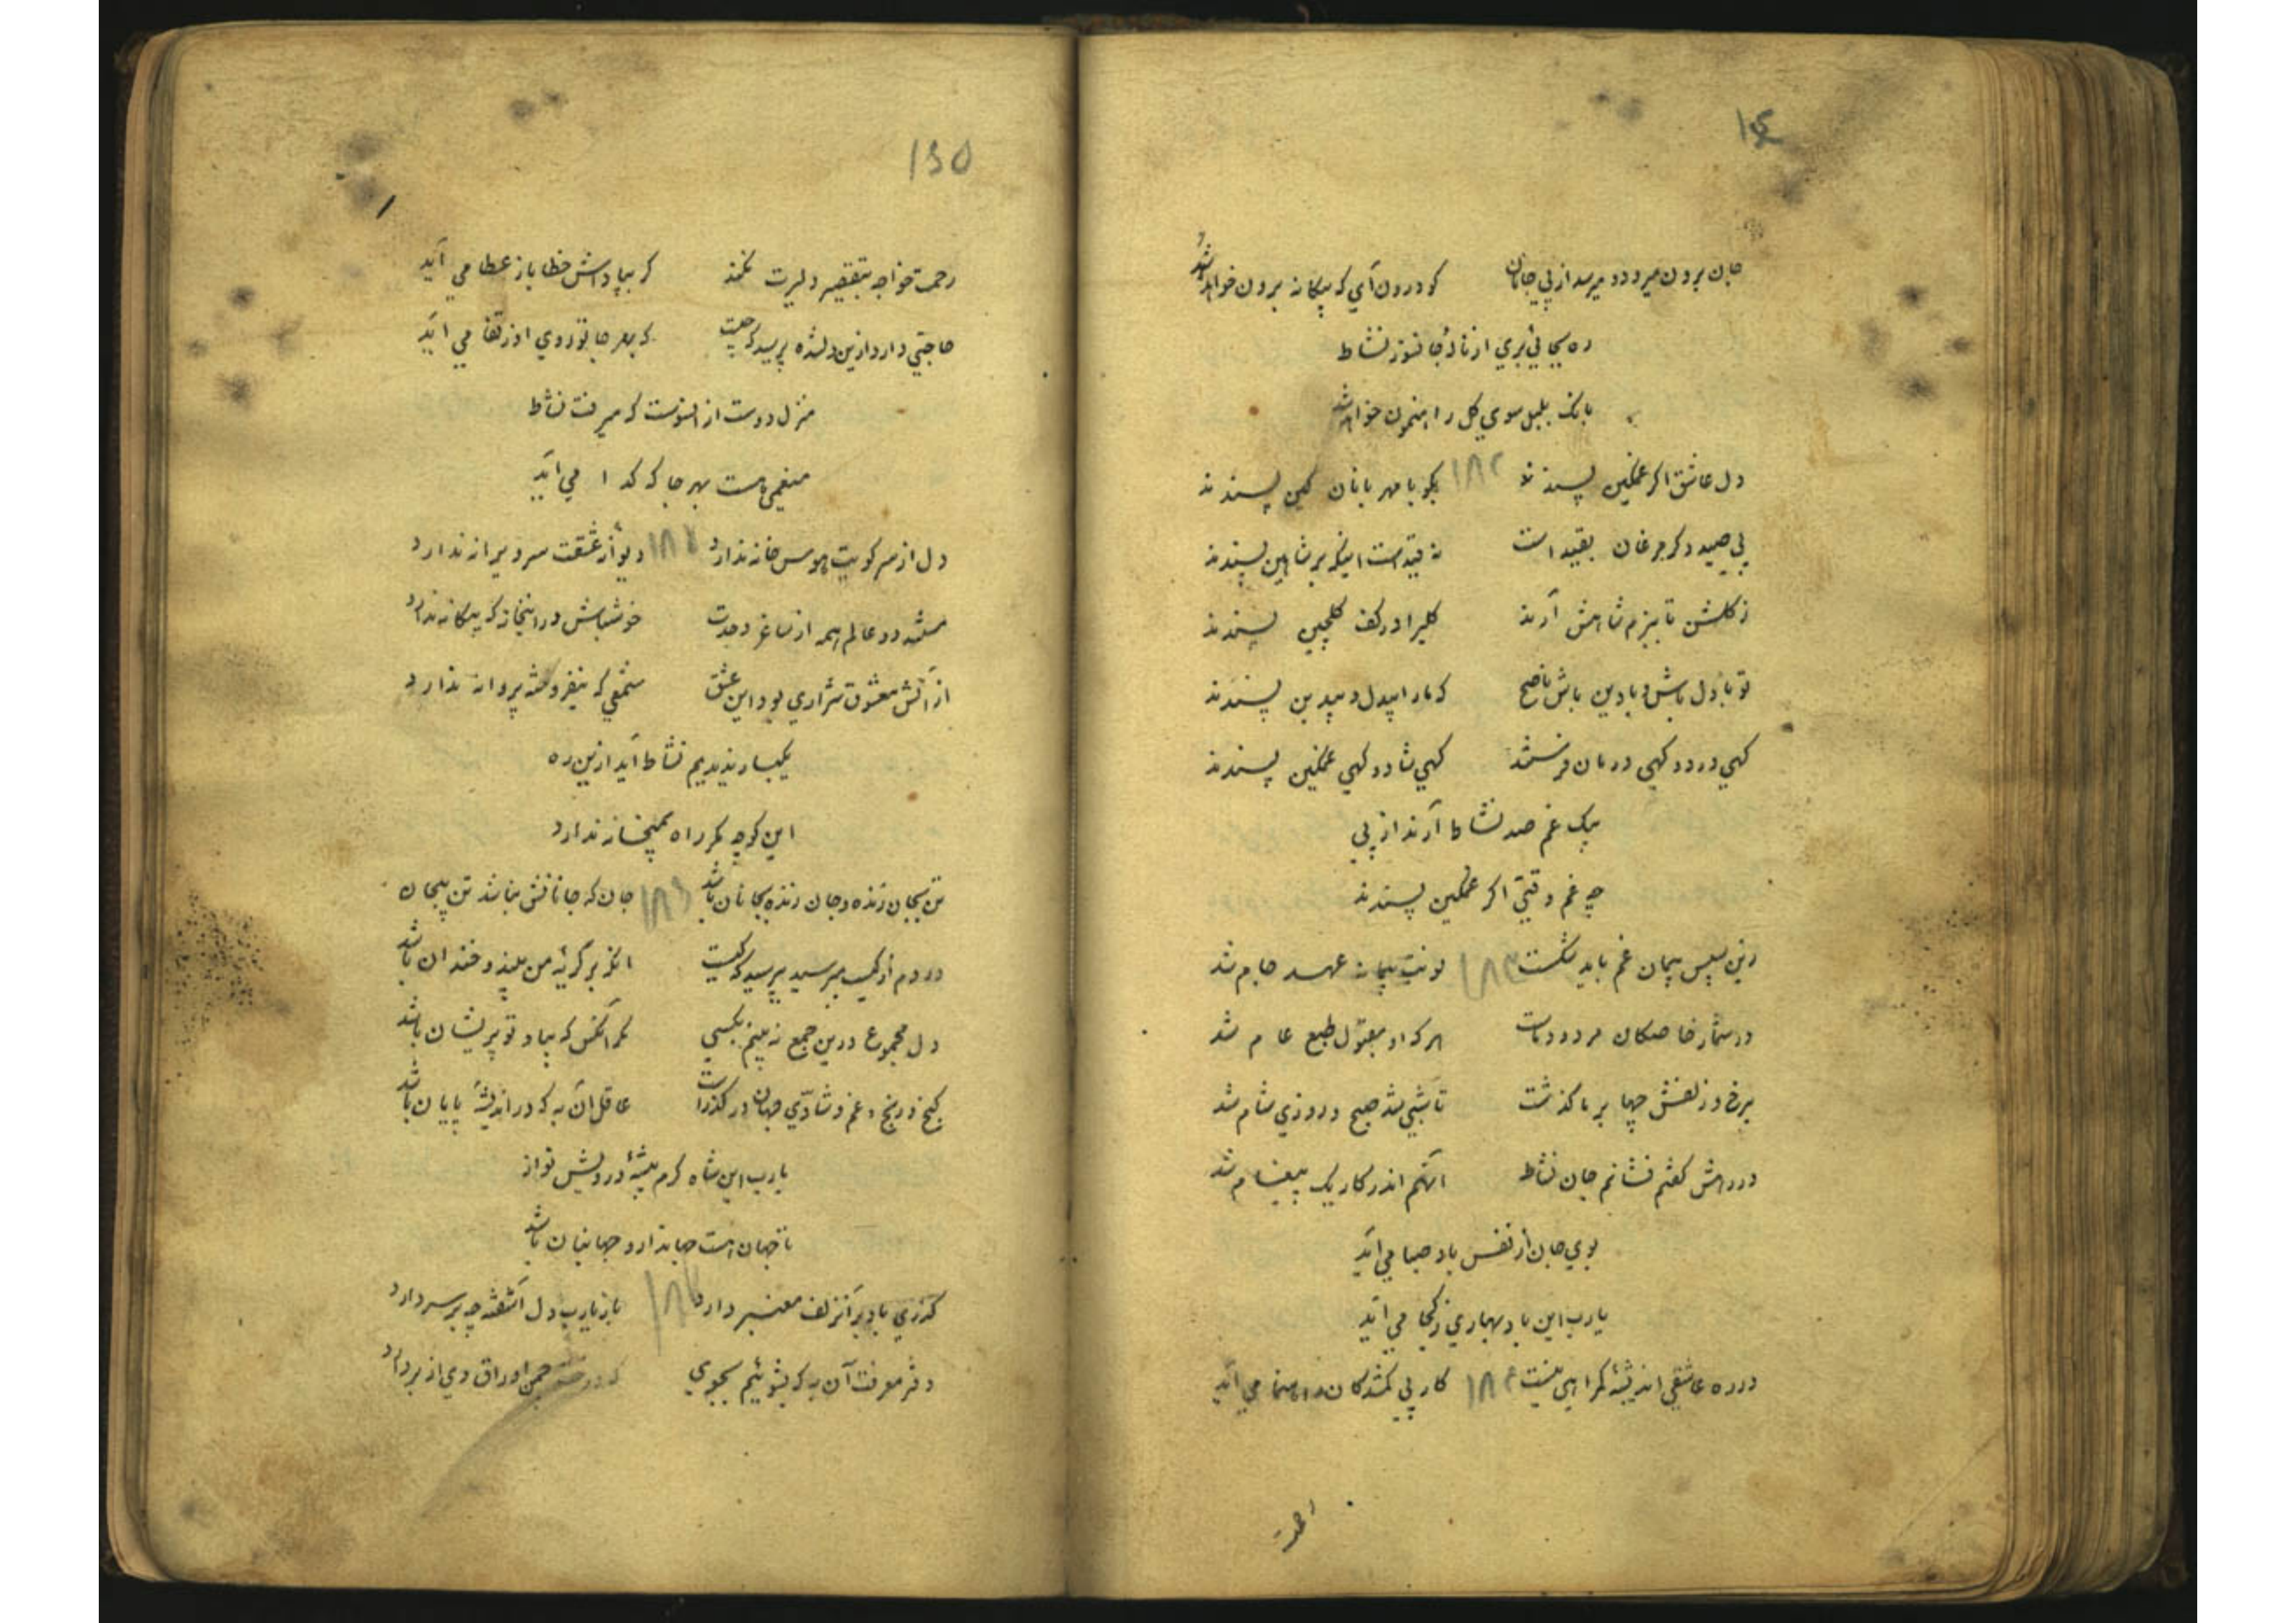 جان برون میرود و میرسد از پی جانان کو درون آی که بیکانه برون خواهد شد
ره بجائی بری از نالهٔ جانسوز نشاط
بانک بلبل سوی کل راهنمون خواهد شد
دل عاشق اکر غمکین پسندند ۱۸۲ بکو با مهربانان کین پسندند
پی صید دکر مرغان بقید است نه قیدست اینکه بر شاهین پسندند
ز کلشن تا ببزم شاهش آرند کلیرا در کف کلچین پسندند
تو با دل باش و با دین باش ناصح که ما را بیدل و بیدین پسندند
کهی درد و کهی درمان فرستند کهی شاد و کهی غمکین پسندند
بیک غم صد نشاط آرند از پی
چه غم وقتی اکر غمکین پسندند
زین سپس پیمان غم باید شکست ۱۸۳ نوبت پیمانه عهد جام شد
در شمار خاصکان مردود ماست هر که او مقبول طبع عام شد
بر رخ و زلفش چها بر ما کذشت تا شبی شد صبح و روزی شام شد
در رهش کفتم فشانم جان نشاط آنهم اندر کار یک پیغام شد
بوی جان از نفس باد صبا می آید
یارب این باد بهاری ز کجا می آید
در ره عاشقی اندیشهٔ کمراهی نیست ۱۸۴ کار پی کمشدکان راهنما می آید
رحمت
۱۳۵
رحمت خواجه بتقصیر دلیرت نکند که بپاداش خطا باز عطا می آید
حاجتی دارد ازین دلشده پرسید که چیست که بهر جا تو روی او ز قفا می آید
منزل دوست از انسوست که میرفت نشاط
منعمی هست بهر جا که کدا می آید
دل از سر کویت هوس خانه ندارد دیوانهٔ عشقت سر ویرانه ندارد
مستند دو عالم همه از ساغر وحدت خوشباش در اینخانه که بیکانه ندارد
از آتش معشوق شراری بود این عشق شمعی که نیفروخته پروانه ندارد
یکبار ندیدیم نشاط آید ازین ره
این کوچه مکر راه بمیخانه ندارد
تن بجان زنده و جان زنده بجانان باشد ۱۸۶ جان که جانانش نباشد تن بیجان
دردم از کیست مپرسید بپرسید که کیست انکه بر کریهٔ من بیند و خندان باشد
دل مجموع درین جمع نه بینم بکسی مکر آنکس که بیاد تو پریشان باشد
کنج و رنج و غم و شادی جهان در کذر است عاقل آن به که در اندیشهٔ پایان باشد
یارب این شاه کرم پیشهٔ درویش نواز
تا جهان هست جهاندار و جهانبان باشد
کذری باد بر آنزلف معنبر دارد ۱۸۷ باز یارب دل آشفته چه بر سر دارد
دفتر معرفت آن به که بشوئیم بجوی که چمن اوراق وی از بر دارد